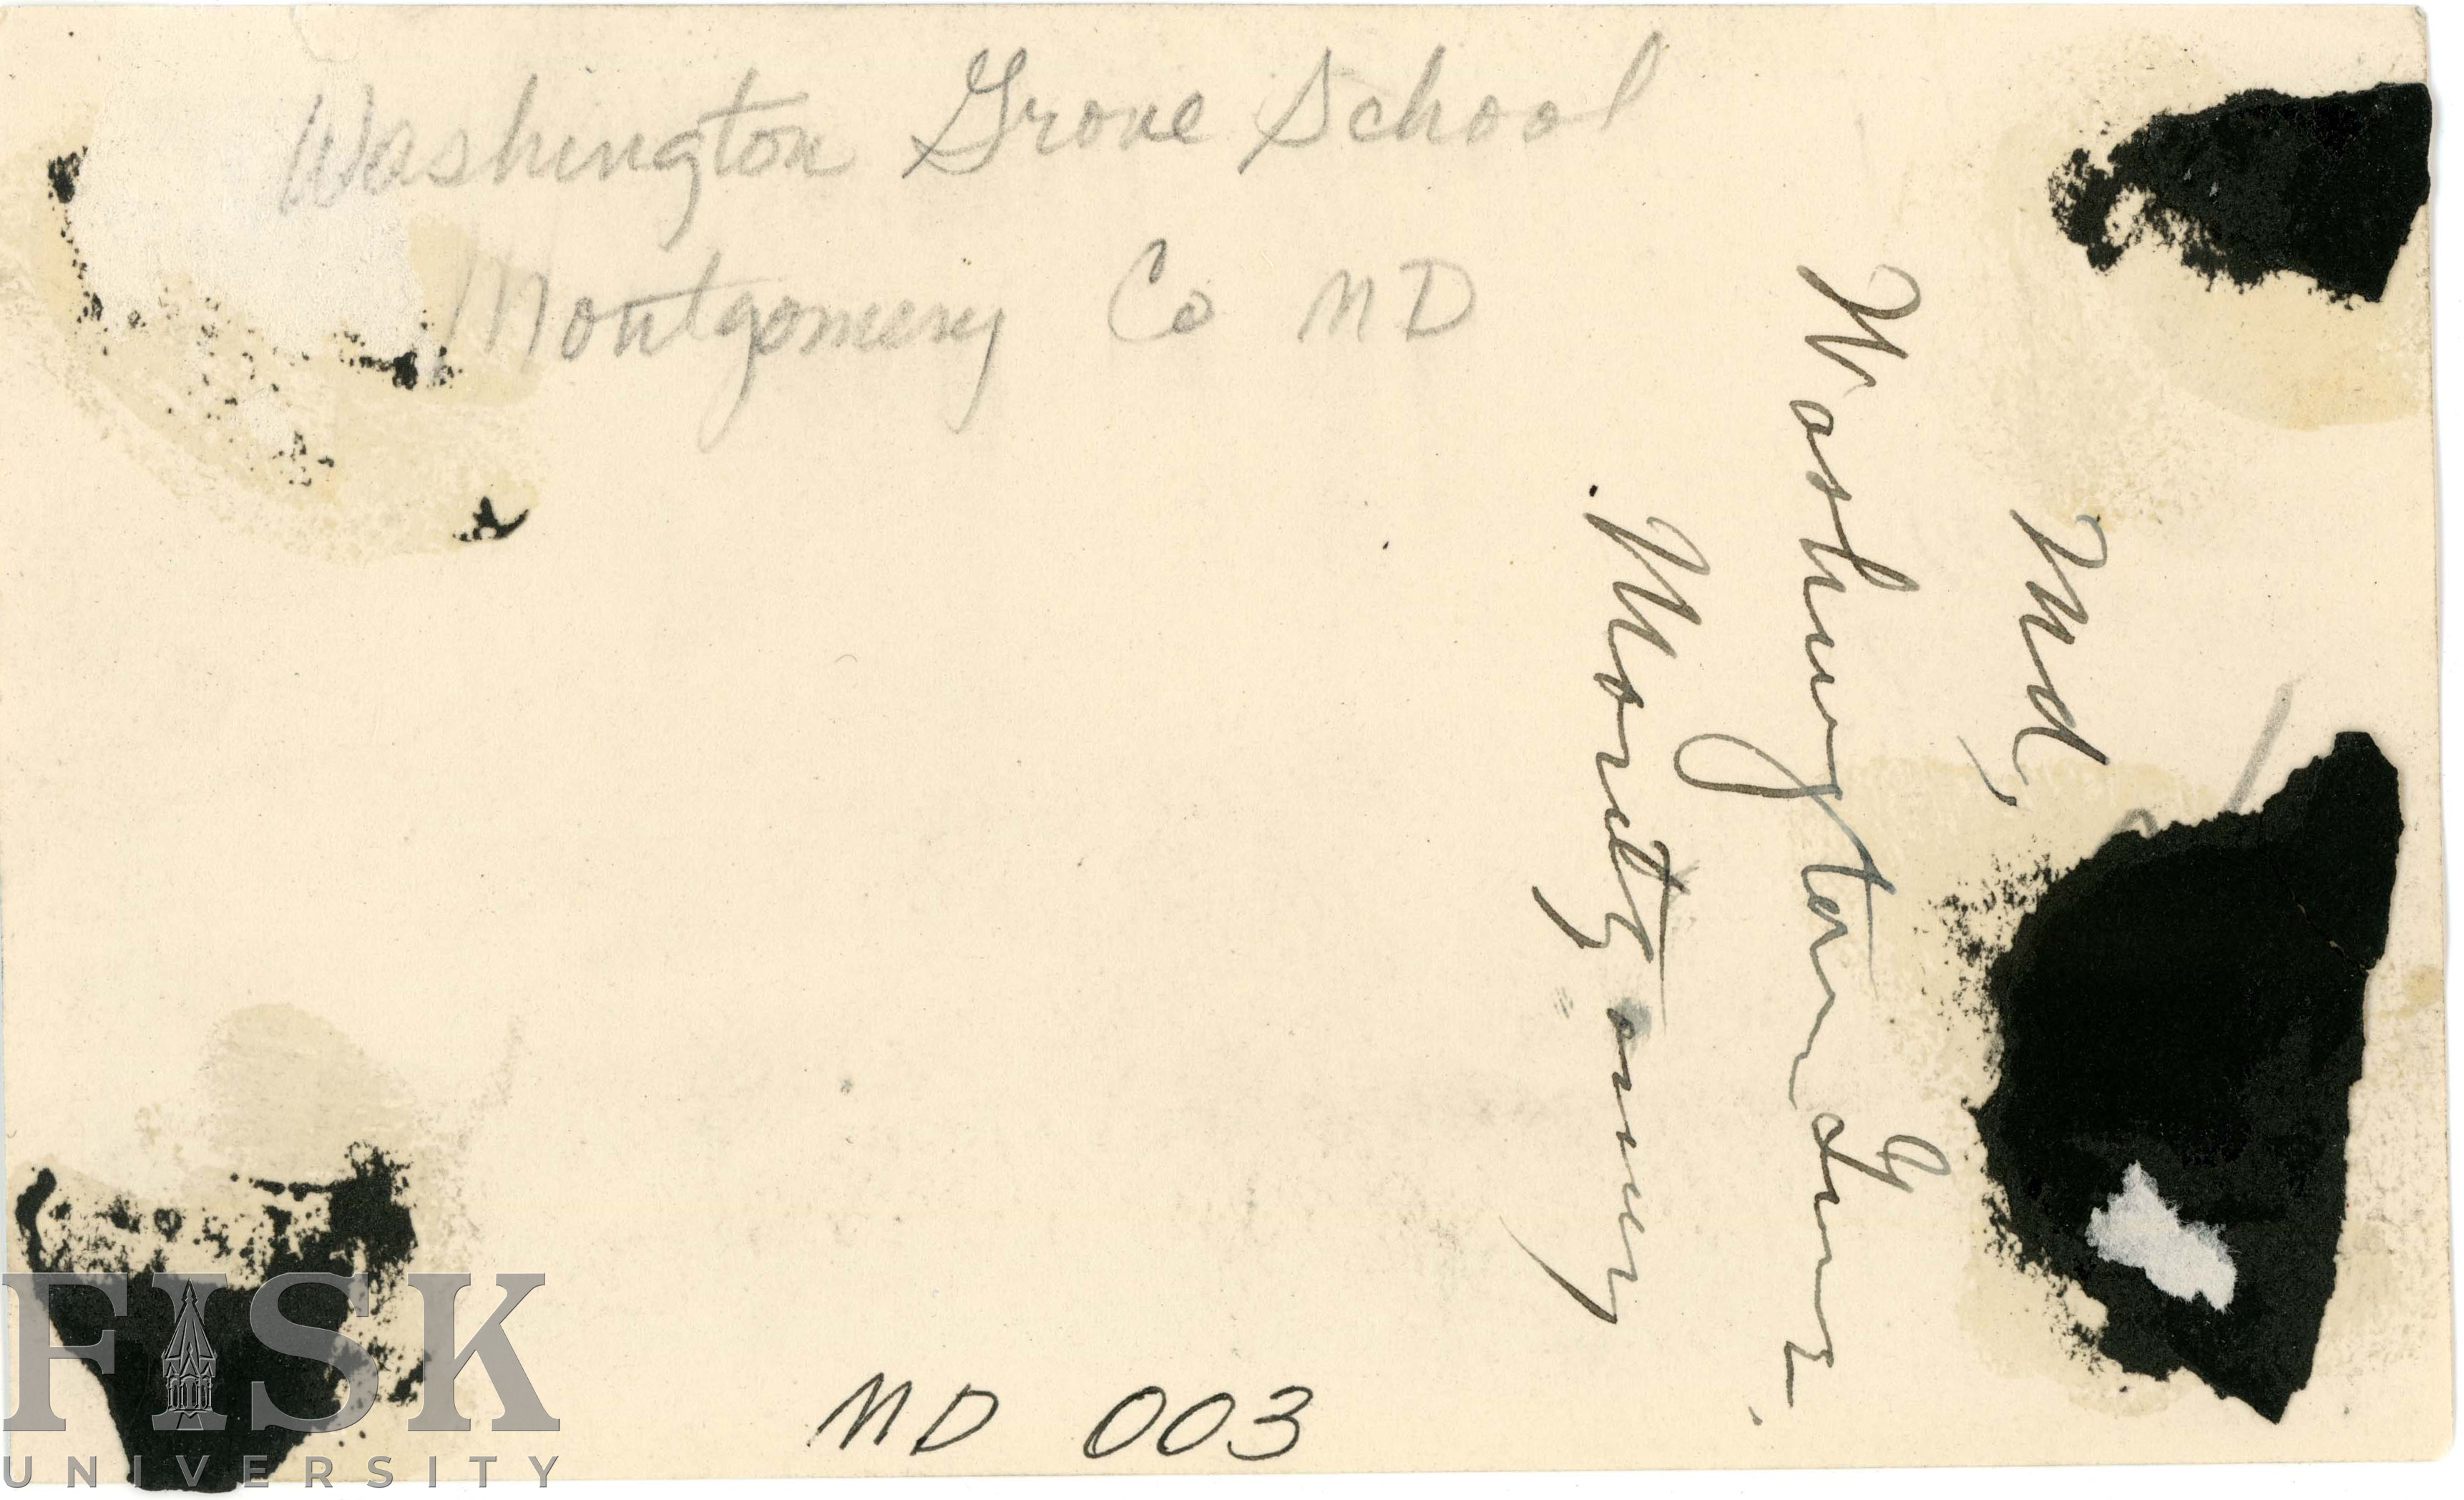 Washington Grove School
Montgomery Co MD
Md,
Washington Grove
Montgomery
MD 003
FISK
UNIVERSITY